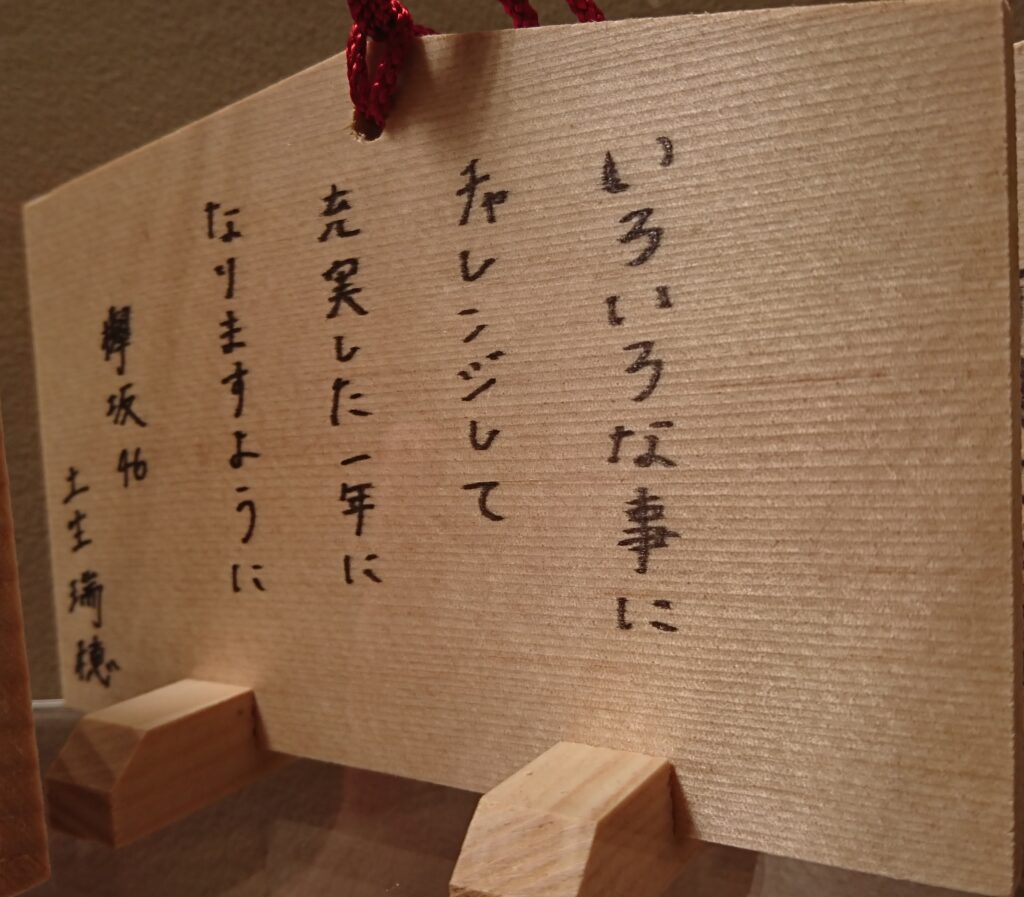 いろいろな事に
チャレンジして
充実した一年に
なりますように
欅坂46
土生瑞穂